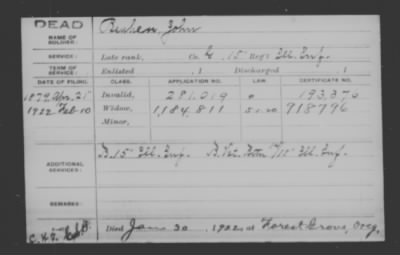 DEAD
NAME OF SOLDIER: John
SERVICE: Late rank, Co. G, 15 Reg't Ill. Inf.
TERM OF SERVICE: Enlisted , 1 Discharged , 1
DATE OF FILING. CLASS. APPLICATION NO. LAW. CERTIFICATE NO.
1879 Apr. 21 Invalid, 281,019 193,370
1922 Feb 10 Widow, 1,184,811 5-1-20 918796
Minor,
ADDITIONAL SERVICES: B. 15 Ill. Inf. B. Vet. Btn 14/15 Ill. Inf.
REMARKS:
Died Jan 30, 1922 at Forest Grove, Oreg.